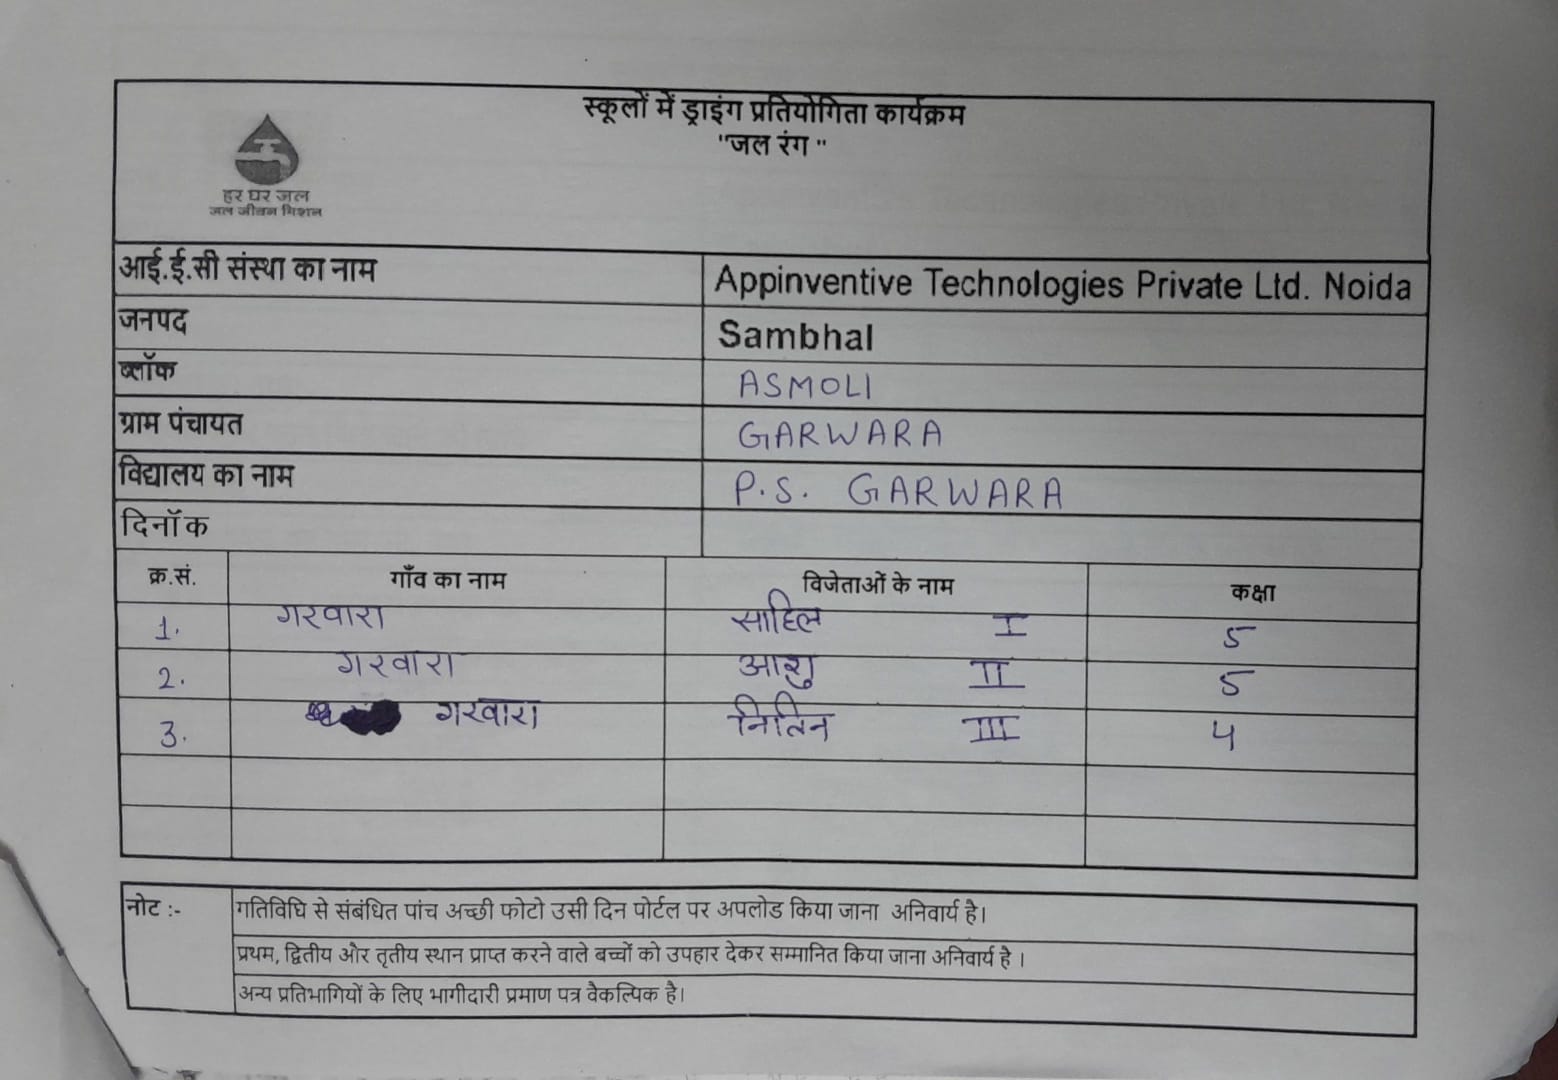 स्कूलों में ड्राइंग प्रतियोगिता कार्यक्रम
"जल रंग "
हर घर जल
जल जीवन मिशन
आई.ई.सी संस्था का नाम Appinventive Technologies Private Ltd. Noida
जनपद Sambhal
ब्लॉक ASMOLI
ग्राम पंचायत GARWARA
विद्यालय का नाम P.S. GARWARA
दिनॉक
क्र.सं. गाँव का नाम विजेताओं के नाम कक्षा
1. गरवारा साहिल I 5
2. गरवारा आशु II 5
3. गरवारा नितिन III 4
नोट :- गतिविधि से संबंधित पांच अच्छी फोटो उसी दिन पोर्टल पर अपलोड किया जाना अनिवार्य है।
प्रथम, द्वितीय और तृतीय स्थान प्राप्त करने वाले बच्चों को उपहार देकर सम्मानित किया जाना अनिवार्य है ।
अन्य प्रतिभागियों के लिए भागीदारी प्रमाण पत्र वैकल्पिक है।